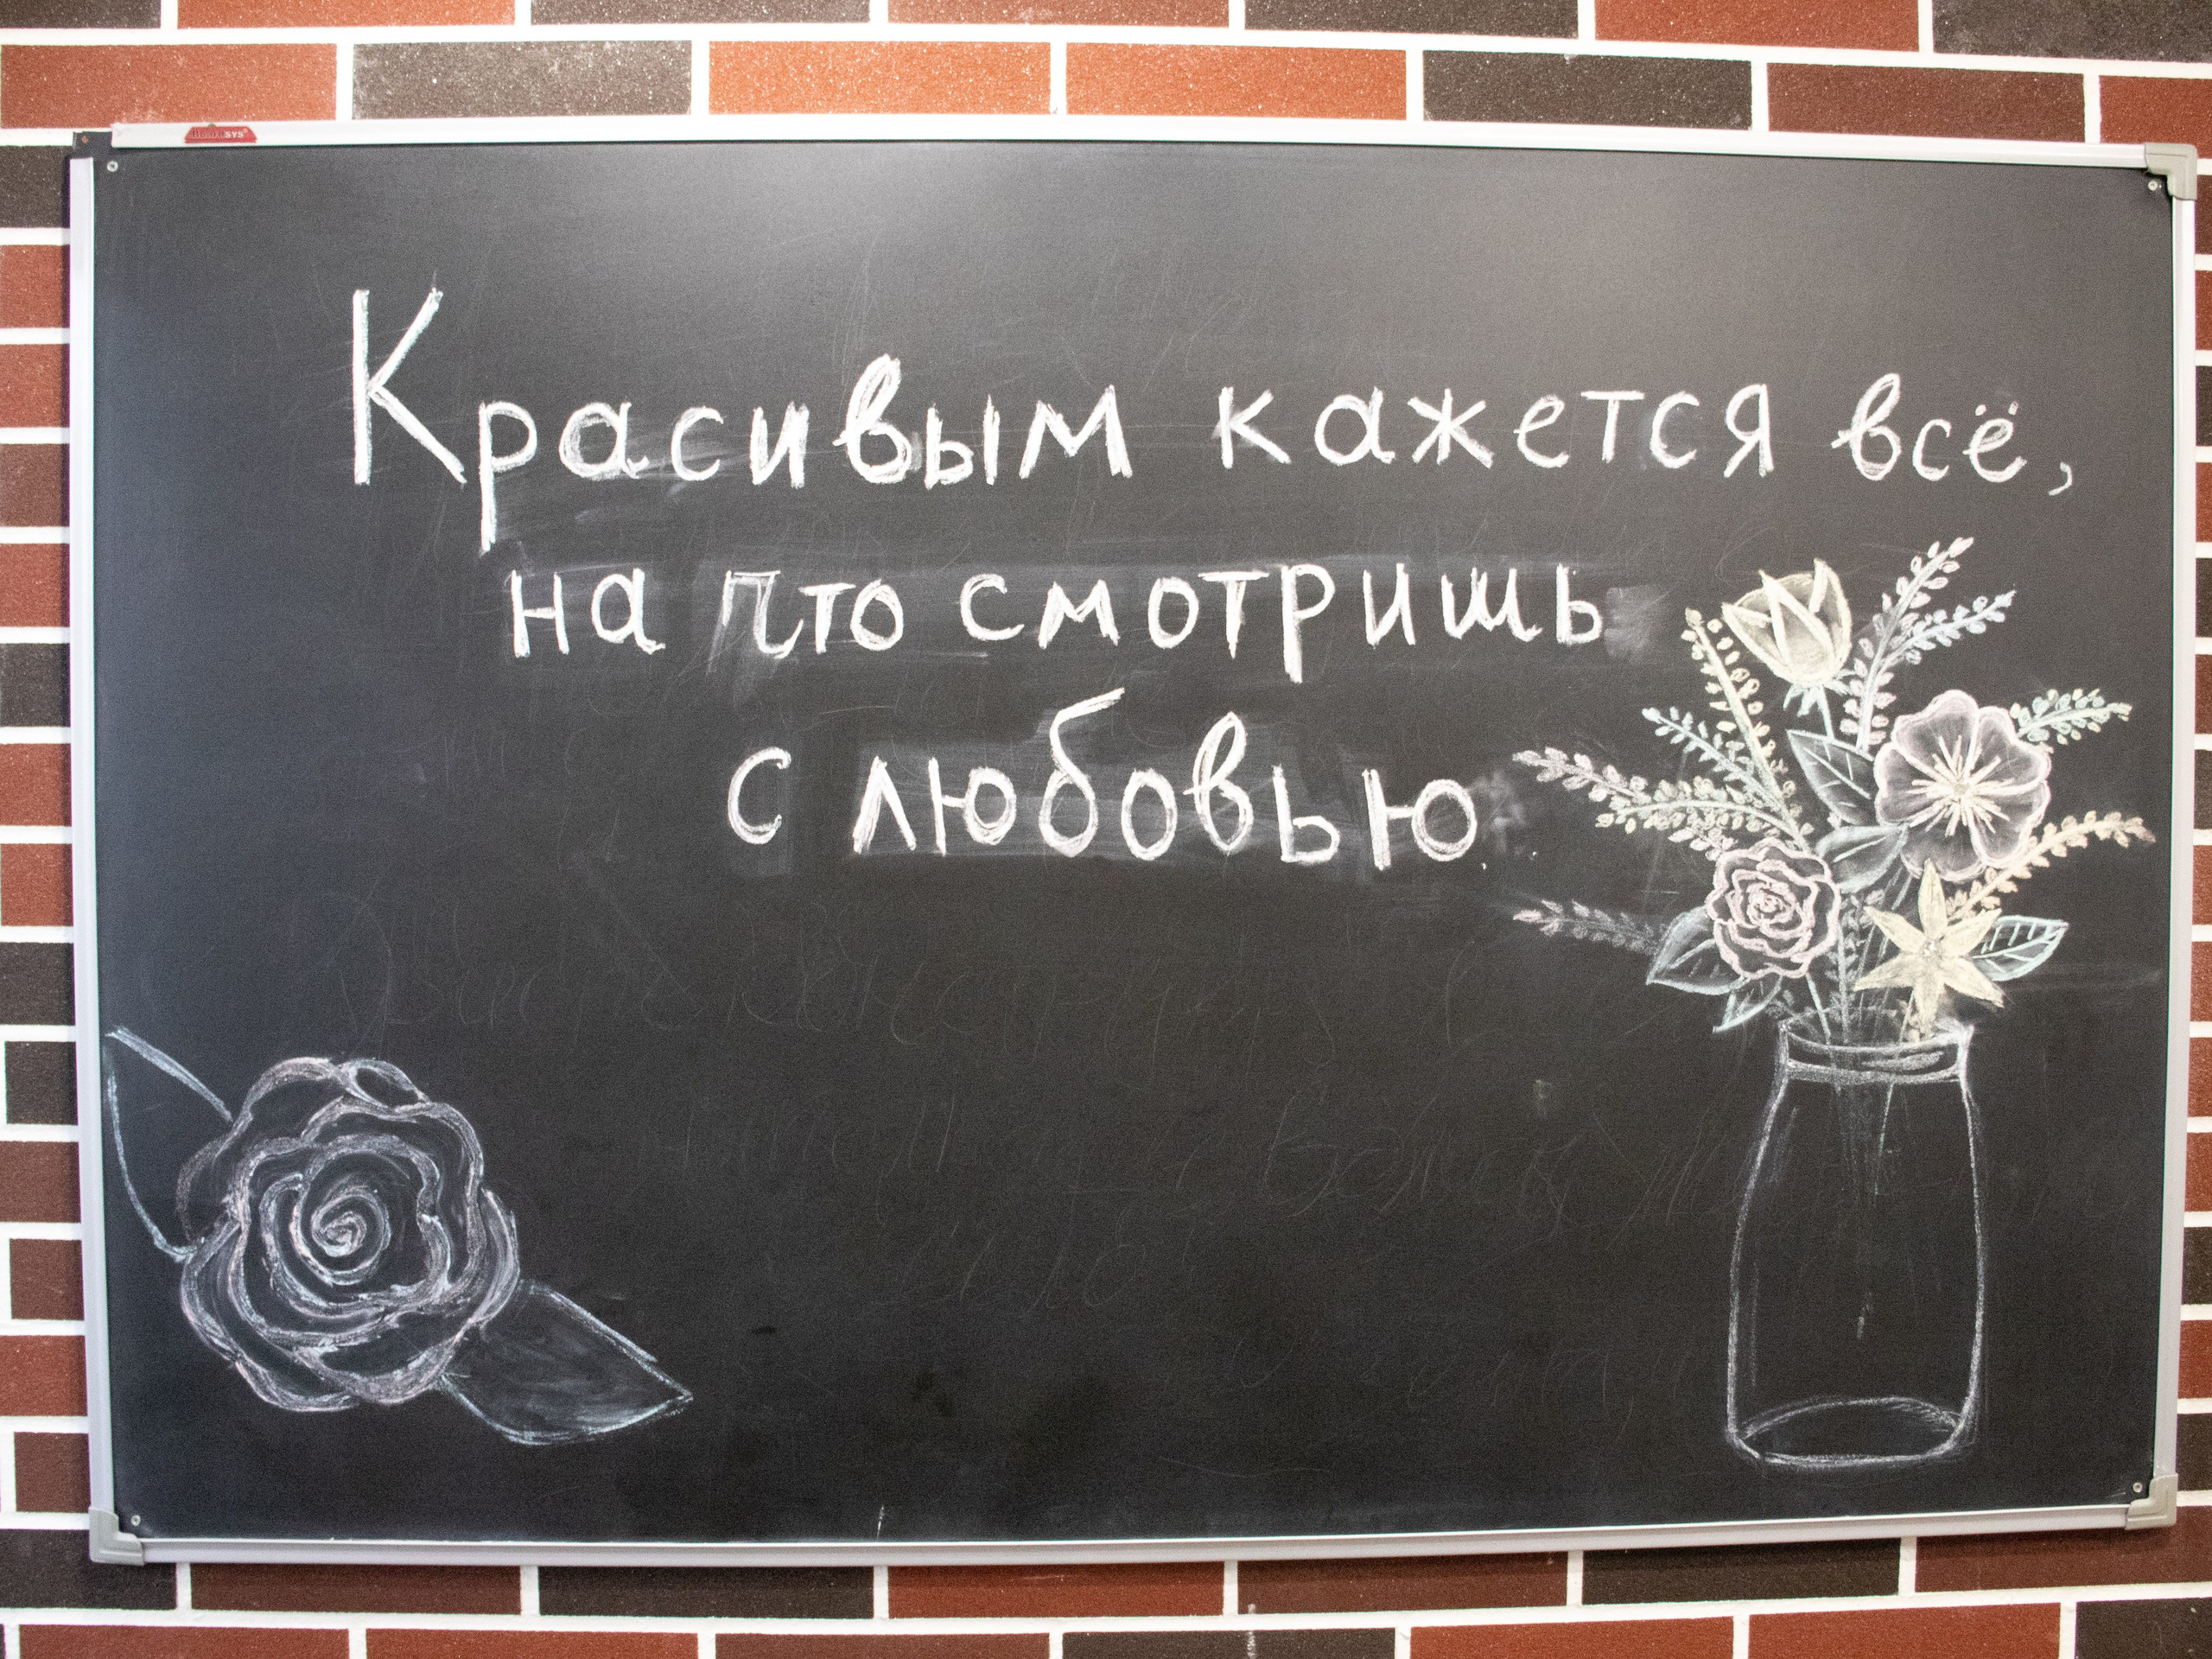 Красивым кажется всё,
на что смотришь
с любовью